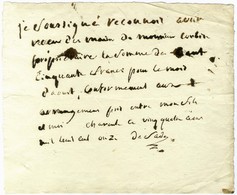 je soussigné reconnois avoir
recu des mains de monsieur
proprietaire la somme de cent
cinquante francs pour le mois
d'aout, conformement aux
arrangemens fait entre mon fils
et moi charenton ce vingt quatre aout
mil huit cent onze de Sade